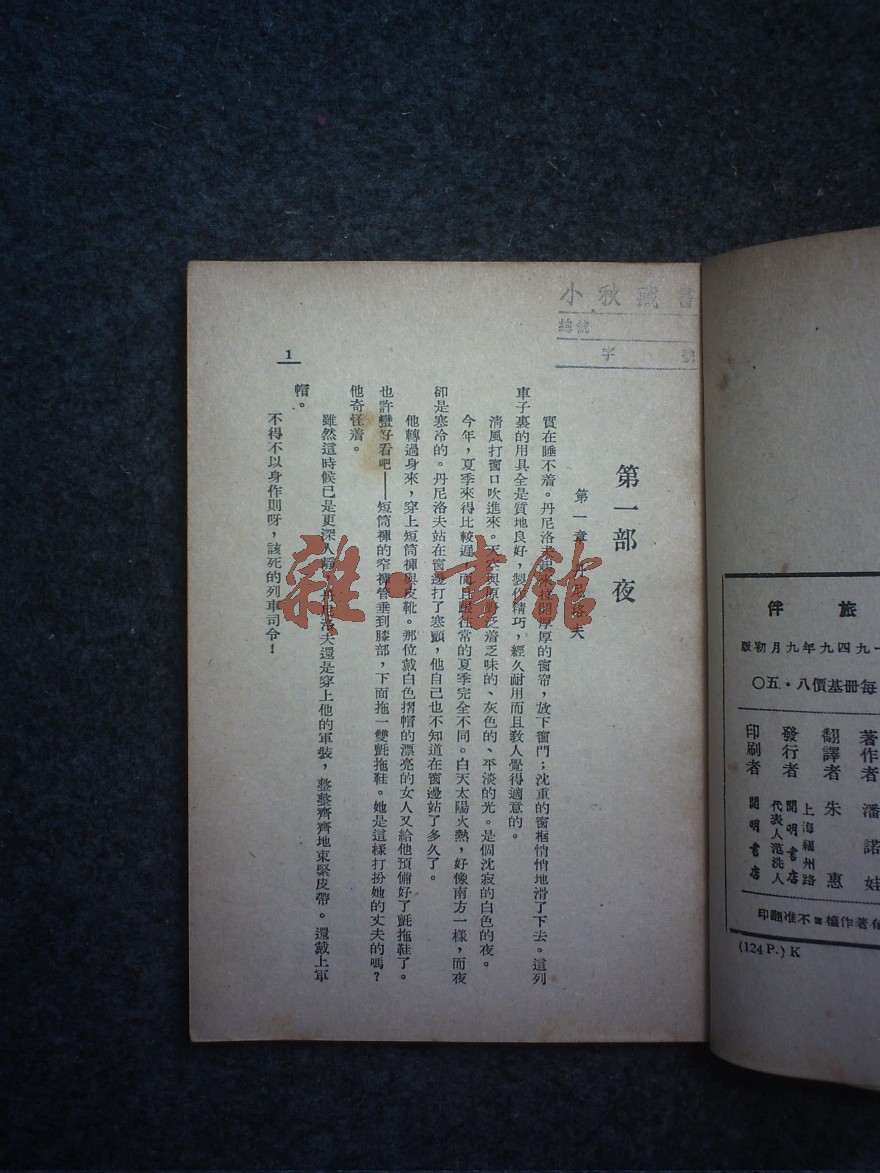 旅伴
一九四九年九月初版
每冊基價八·五〇
著作者 潘諾娃
翻譯者 朱惠
發行者 開明書店
上海福州路
代表人范洗人
印刷者 開明書店
有著作權 不准翻印
(124 P.) K
小秋藏書
總號
字號
第一部 夜
第一章 丹尼洛夫
實在睡不着。丹尼洛夫起來拉開厚厚的窗帘，放下窗門；沈重的窗框悄悄地滑了下去。這列
車子裏的用具全是質地良好，製作精巧，經久耐用而且教人覺得適意的。
清風打窗口吹進來。天空與原野泛着乏味的、灰色的、平淡的光。是個沈寂的白色的夜。
今年，夏季來得比較遲，而且跟往常的夏季完全不同。白天太陽火熱，好像南方一樣，而夜
卻是寒冷的。丹尼洛夫站在窗邊打了寒顫，他自己也不知道在窗邊站了多久了。
他轉過身來，穿上短筒褲與皮靴。那位戴白色摺帽的漂亮的女人又給他預備好了氈拖鞋了。
也許蠻好看吧——短筒褲的窄褲管垂到膝部，下面拖一雙氈拖鞋。她是這樣打扮她的丈夫的嗎？
他奇怪着。
雖然這時候已是更深人靜，丹尼洛夫還是穿上他的軍裝，整整齊齊地束緊皮帶。還戴上軍
帽。
不得不以身作則呀，該死的列車司令！
1
雜·書館